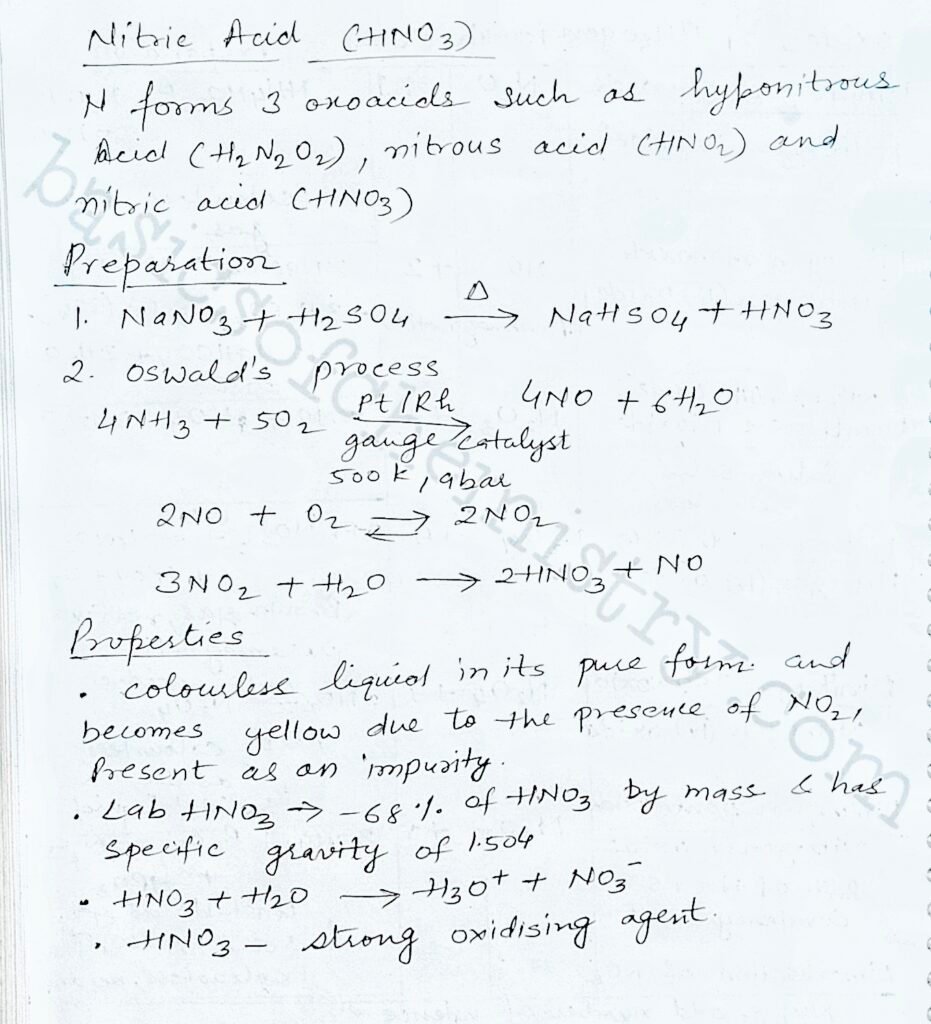 Nitric Acid (HNO3)
N forms 3 oxoacids such as hyponitrous
Acid (H2N2O2), nitrous acid (HNO2) and
nitric acid (HNO3)
Preparation
1. NaNO3 + H2SO4 —Δ→ NaHSO4 + HNO3
2. Oswald's process
4NH3 + 5O2 —Pt/Rh→ 4NO + 6H2O
gauge catalyst
500 K, 9bar
2NO + O2 ⇌ 2NO2
3NO2 + H2O → 2HNO3 + NO
Properties
• colourless liquid in its pure form. and
becomes yellow due to the presence of NO2,
Present as an impurity.
• Lab HNO3 → -68 % of HNO3 by mass & has
specific gravity of 1.504
• HNO3 + H2O → H3O+ + NO3-
• HNO3 - strong oxidising agent.
basicsofchemistry.com